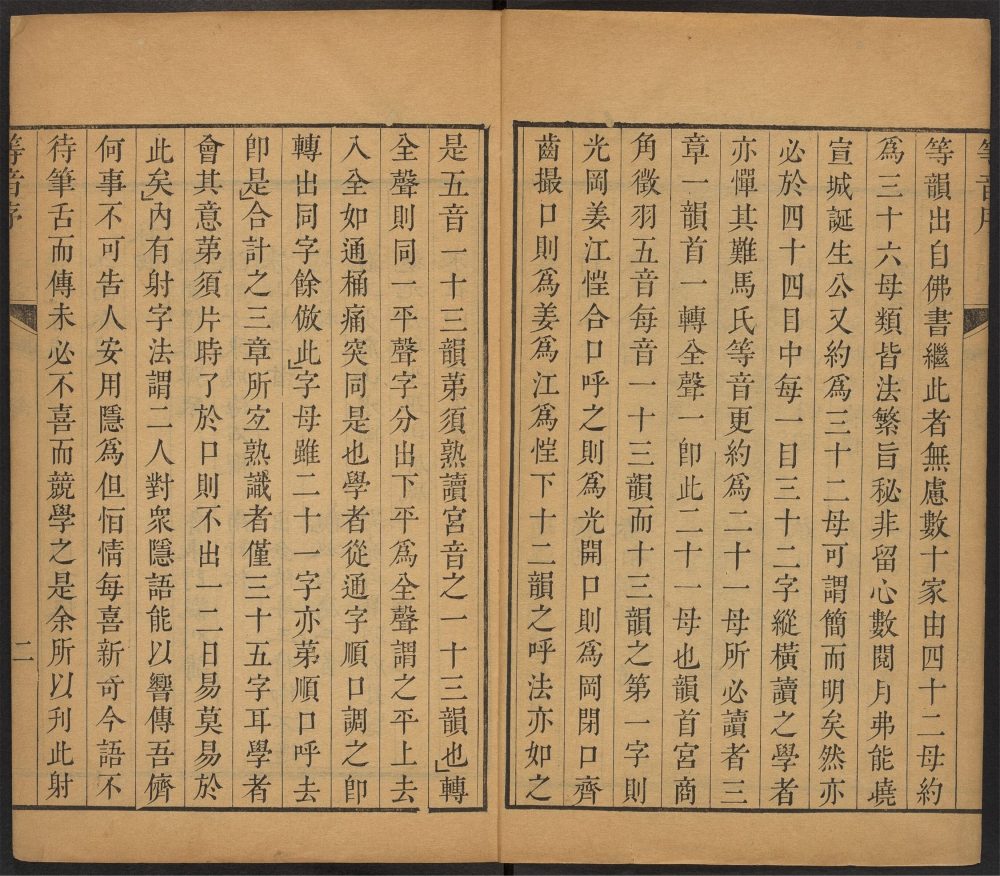 等音序
等韻出自佛書繼此者無慮數十家由四十二母約
爲三十六母類皆法繁旨秘非留心數閱月弗能曉
宣城誕生公又約爲三十二母可謂簡而明矣然亦
必於四十四目中每一目三十二字縱橫讀之學者
亦憚其難馬氏等音更約爲二十一母所必讀者三
章一韻首一轉全聲一卽此二十一母也韻首宮商
角徵羽五音每音一十三韻而十三韻之第一字則
光岡姜江恇合口呼之則爲光開口則爲岡閉口齊
齒撮口則爲姜爲江爲恇下十二韻之呼法亦如之
是五音一十三韻苐須熟讀宮音之一十三韻也轉
全聲則同一平聲字分出下平爲全聲謂之平上去
入全如通桶痛突同是也學者從通字順口調之卽
轉出同字餘倣此字母雖二十一字亦苐順口呼去
卽是合計之三章所宜熟識者僅三十五字耳學者
會其意苐須片時了於口則不出一二日易莫易於
此矣內有射字法謂二人對衆隱語能以響傳吾儕
何事不可告人安用隱爲但恒情每喜新奇今語不
待筆舌而傳未必不喜而競學之是余所以刋此射
等音序
二